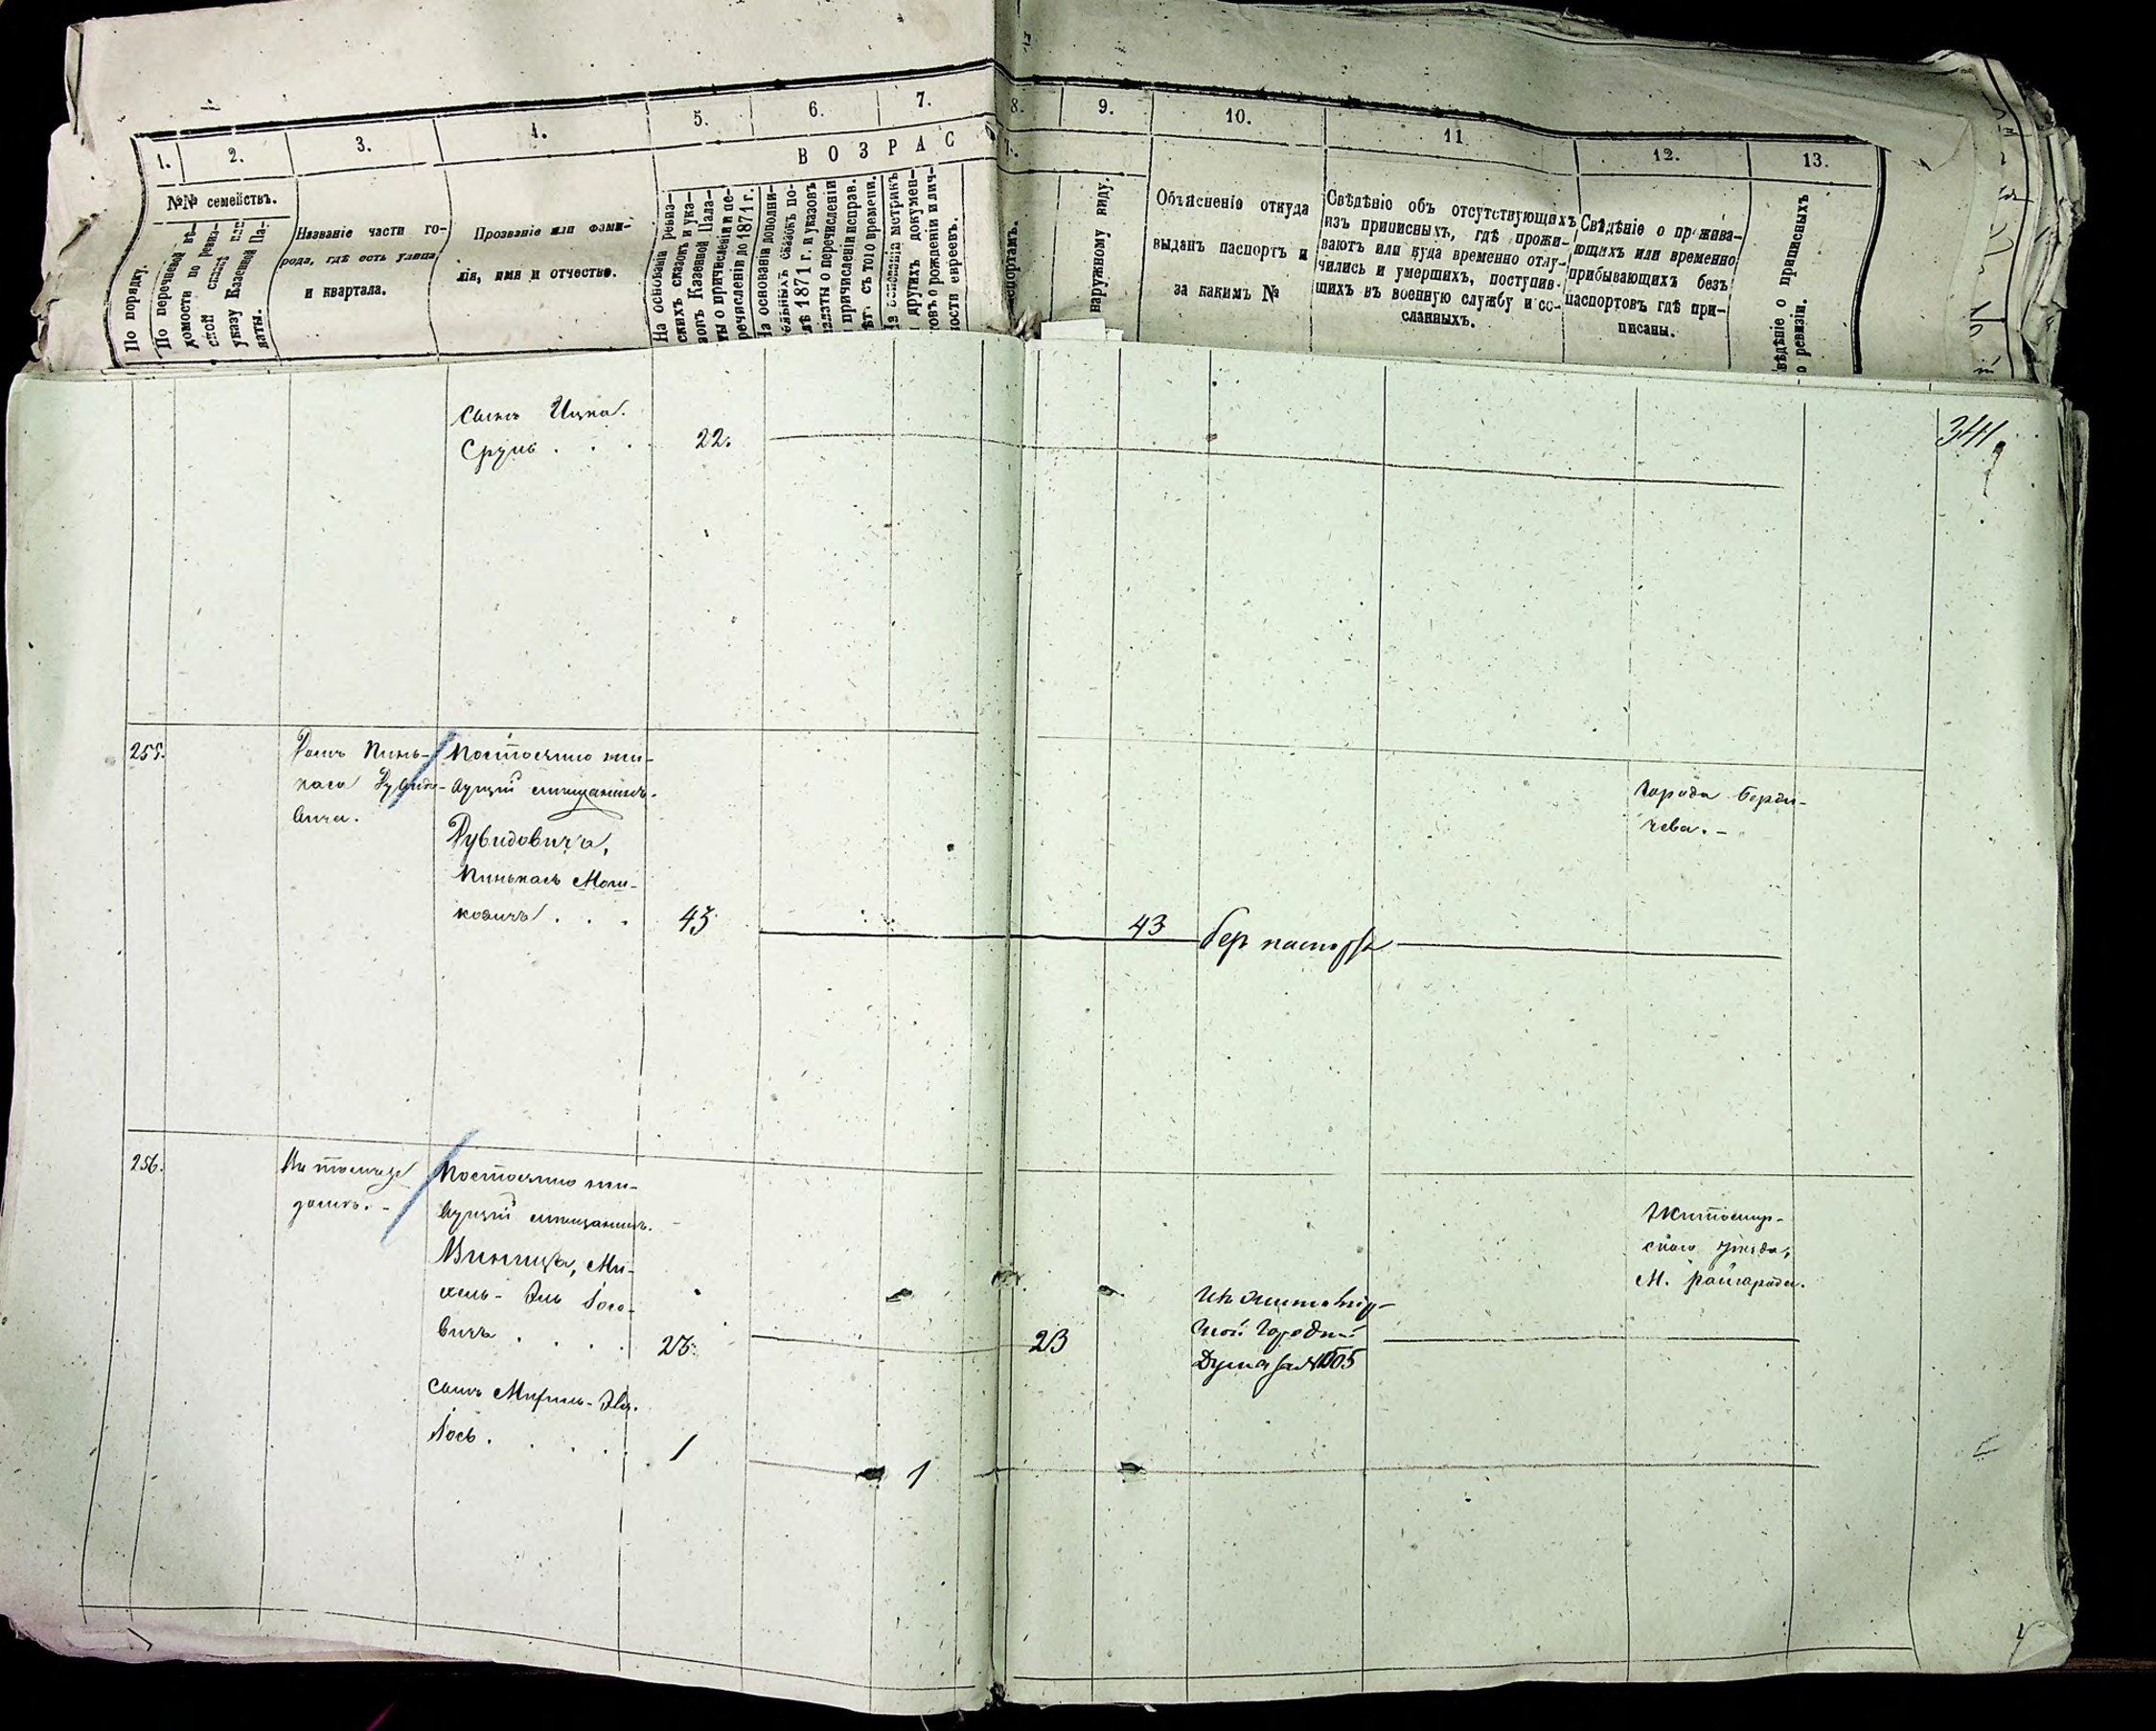 1.
2.
3.
4.
5.
6.
7.
8.
9.
10.
11
12.
13.
ВОЗРАС
№№ семействъ.
По порядку.
По перечневой вѣ-
домости по ревиз-
ской сказкѣ или
указу Казенной Па-
латы.
Названіе части го-
рода, гдѣ есть улица
и квартала.
Прозваніе или фами-
лія, имя и отчество.
На основаніи ревиз-
скихъ сказокъ и ука-
зовъ Казенной Пала-
ты о причисленіи и пе-
речисленіи до 1871 г.
На основаніи дополни-
тельныхъ сказокъ по-
слѣ 1871 г. и указовъ
палаты о перечисленіи
причисленіи исправ.
лѣт. съ того времени.
На основаніи метрикъ
и другихъ докумен-
товъ о рожденіи и лич-
ности евреевъ.
паспортамъ.
наружному виду.
Объясненіе откуда
выданъ паспортъ и
за какимъ №
Свѣдѣніе объ отсутствующихъ
изъ приписныхъ, гдѣ прожи-
ваютъ или куда временно отлу-
чились и умершихъ, поступив-
шихъ въ военную службу и со-
сланныхъ.
Свѣдѣніе о прожива-
ющихъ или временно
прибывающихъ безъ
паспортовъ гдѣ при-
писаны.
свѣдѣніе о приписныхъ
по ревизіи.
341
сынъ Ицка.
Сруль . . . 22.
255.
Домъ Пинь-
каса Дувидо-
вича.
Постоянно жи-
вущій мѣщанинъ.
Дувидовичъ,
Пинькасъ Мош-
ковичъ . . . 43.
43
без паспорта
города Берди-
чева. -
256.
Въ томъ же
домѣ. -
Постоянно жи-
вущій мѣщанинъ.
Винница, Ми-
хель-Эль Іосо-
вичъ . . . 23.
23
Изъ Житомир-
ской Городской
Думы за № 1505
Житомир-
скаго уѣзда,
М. Райгорода.
сынъ Михель-Эля.
Іось . . . . . 1
1